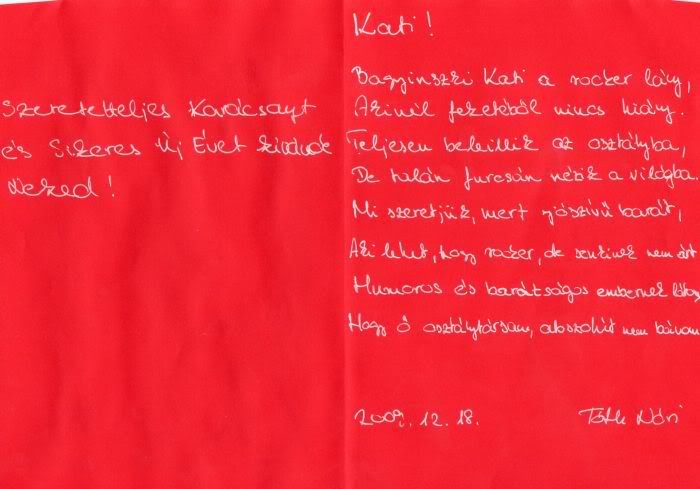 Szeretetteljes Karácsonyt
és Sikeres Új Évet kívánok
Neked!
Kati!
Bagyinszki Kati a rocker lány,
Akinél feketéből nincs hiány.
Teljesen beleillik az osztályba,
De talán furcsán nézik a világba.
Mi szeretjük, mert jószívű barát,
Aki lehet, hogy rocker, de senkinek nem árt
Humoros és barátságos embernek látom
Hogy ő osztálytársam, abszolút nem bánom
2009. 12. 18.
Tóth Nóri